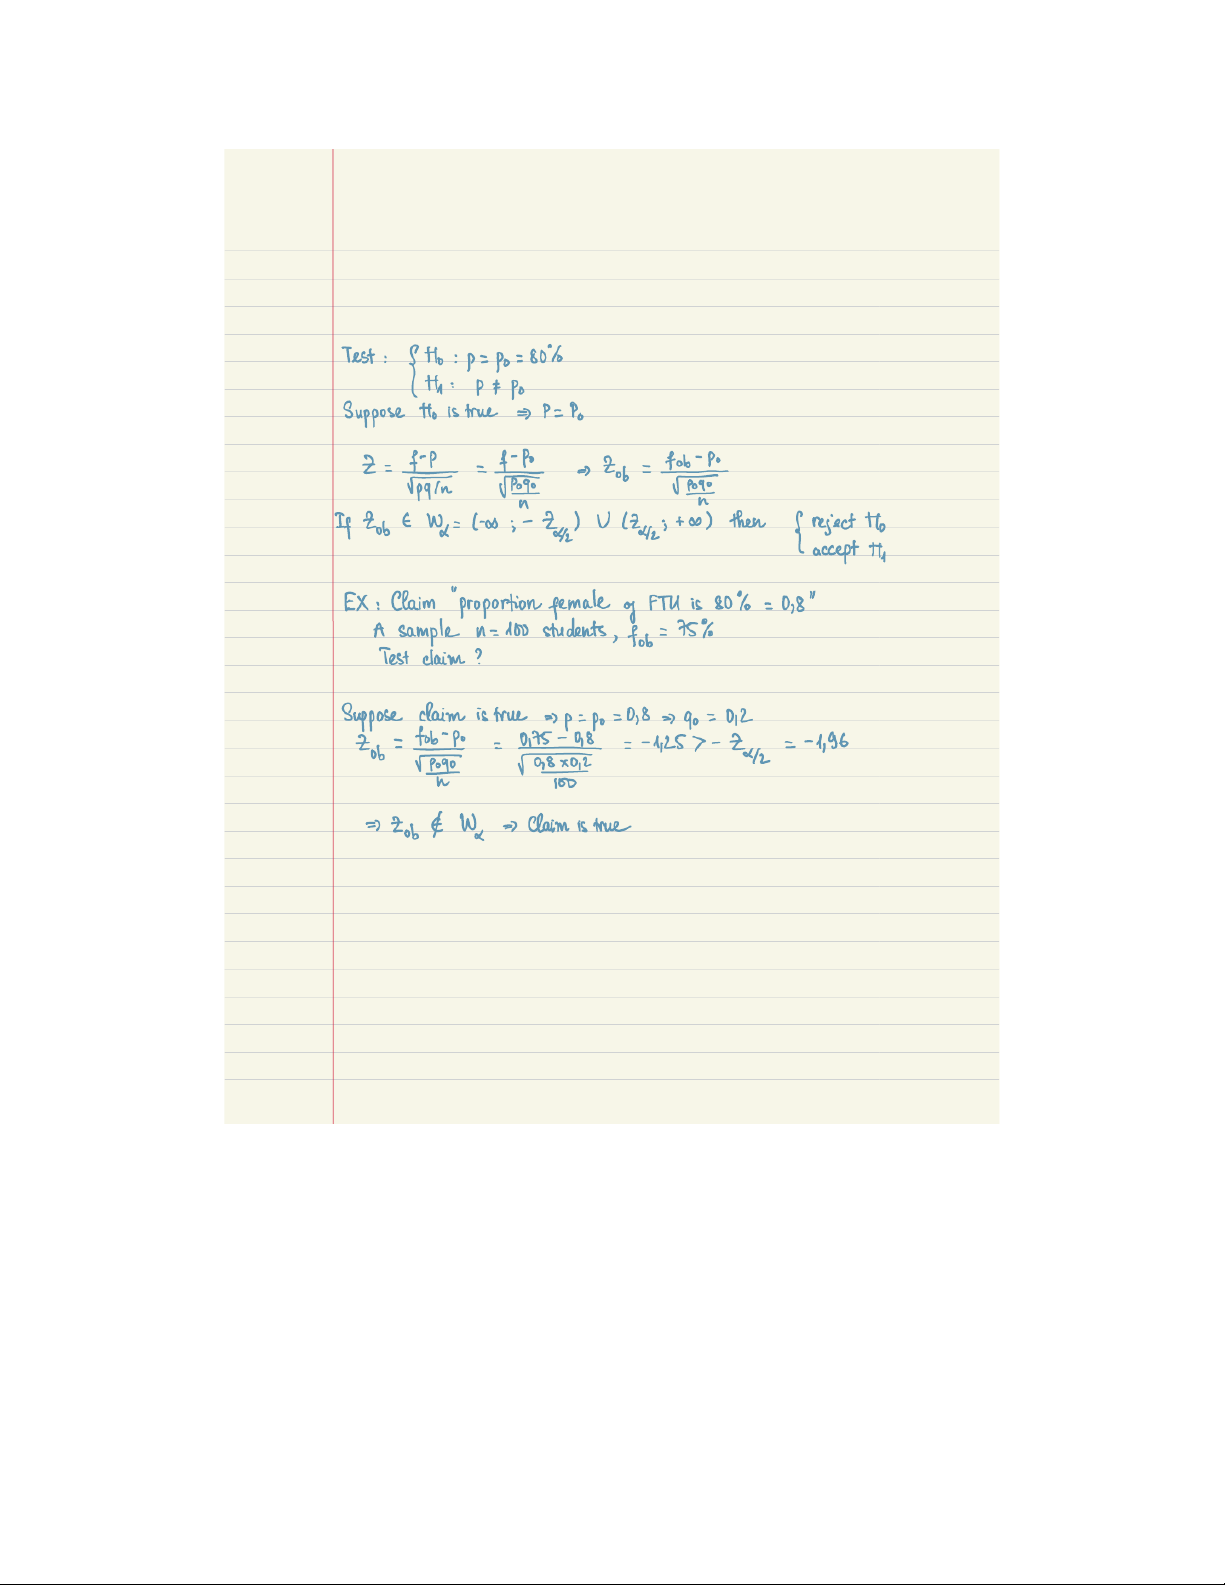 Test : { H₀ : p = p₀ = 80%
H₁ : p ≠ p₀
Suppose H₀ is true ⇒ P = P₀
Z = (f - p)/√(pq/n) = (f - p₀)/√(p₀q₀/n) ⇒ Z_ob = (f_ob - p₀)/√(p₀q₀/n)
If Z_ob ∈ W_α = (-∞ ; - Z_α/2) ∪ (Z_α/2 ; +∞) then { reject H₀
accept H₁
EX : Claim "proportion female of FTU is 80% = 0,8"
A sample n = 100 students, f_ob = 75%
Test claim ?
Suppose claim is true ⇒ p = p₀ = 0,8 ⇒ q₀ = 0,2
Z_ob = (f_ob - p₀)/√(p₀q₀/n) = (0,75 - 0,8)/√(0,8 x 0,2/100) = -1,25 > - Z_α/2 = -1,96
⇒ Z_ob ∉ W_α ⇒ Claim is true